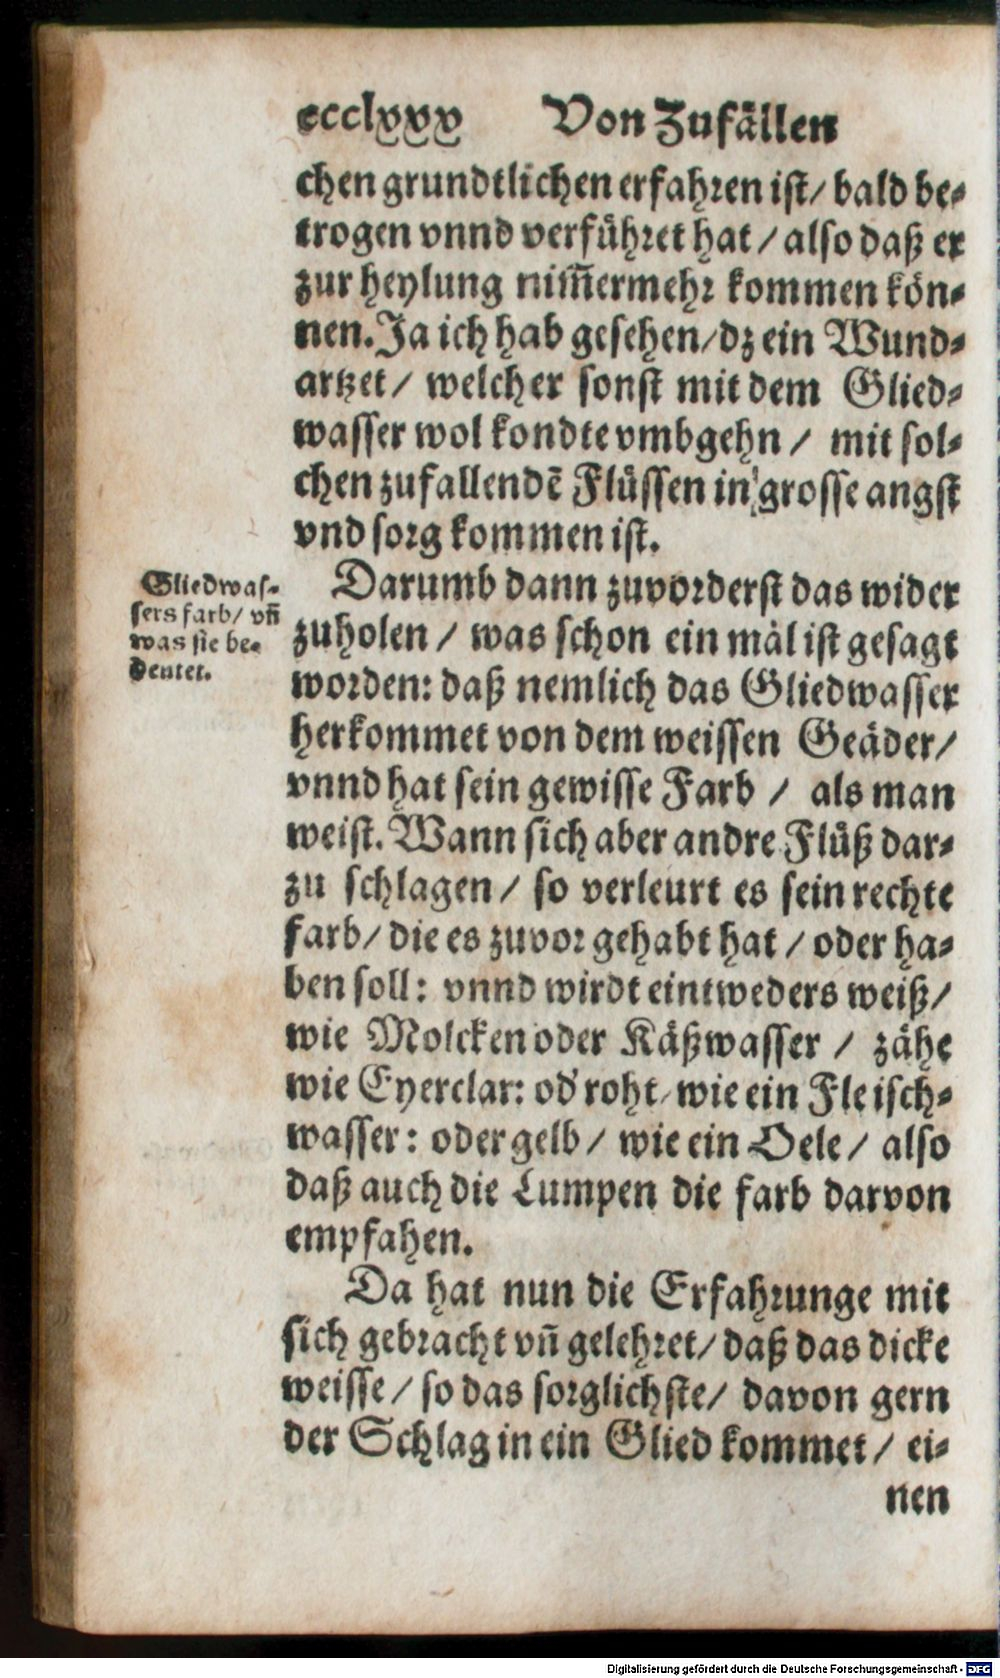 ccclxxx Von Zufällen
chen grundtlichen erfahren ist/ bald be-
trogen vnnd verführet hat / also daß er
zur heylung nim̃ermehr kommen kön-
nen. Ja ich hab gesehen/ dz ein Wund-
artzet / welcher sonst mit dem Glied-
wasser wol kondte vmbgehn / mit sol-
chen zufallendẽ Flüssen in grosse angst
vnd sorg kommen ist.
Gliedwas-
sers farb/ vñ
was sie be-
deutet.
Darumb dann zuvorderst das wider
zuholen / was schon ein mäl ist gesagt
worden: daß nemlich das Gliedwasser
herkommet von dem weissen Geäder/
vnnd hat sein gewisse Farb / als man
weist. Wann sich aber andre Flüß dar-
zu schlagen / so verleurt es sein rechte
farb/ die es zuvor gehabt hat / oder ha-
ben soll: vnnd wirdt eintweders weiß/
wie Molcken oder Käßwasser / zähe
wie Eyerclar: od' roht/ wie ein Fleisch-
wasser: oder gelb / wie ein Oele / also
daß auch die Lumpen die farb darvon
empfahen.
Da hat nun die Erfahrunge mit
sich gebracht vñ gelehret/ daß das dicke
weisse / so das sorglichste/ davon gern
der Schlag in ein Glied kommet / ei-
nen
Digitalisierung gefördert durch die Deutsche Forschungsgemeinschaft - DFG